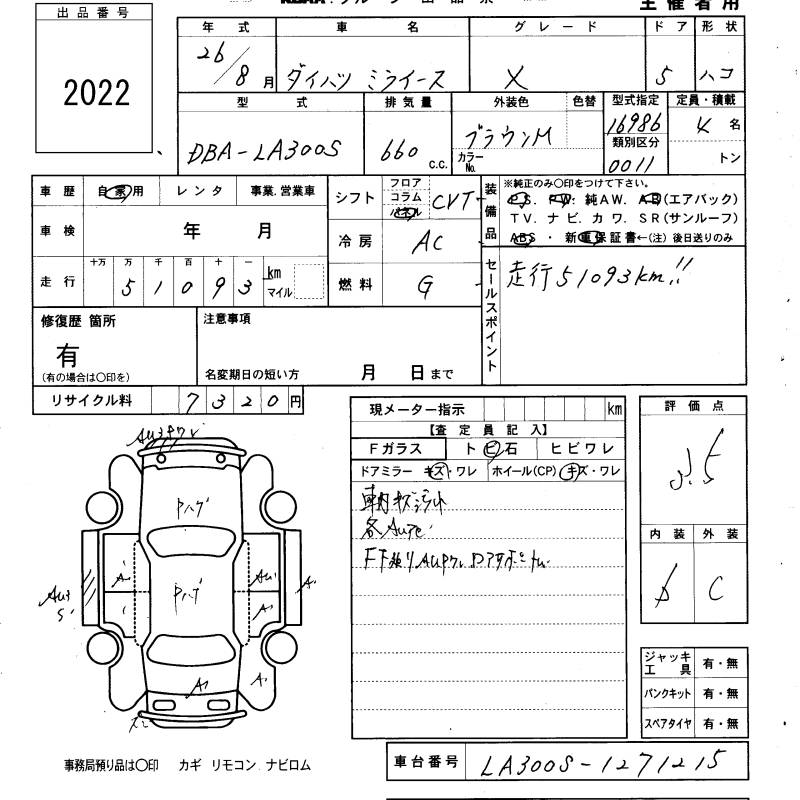 出品番号
2022
主催者用
年式 車名 グレード ドア 形状
26/8月 ダイハツ ミライース X 5 ハコ
型式 排気量 外装色 色替 型式指定 定員・積載
DBA-LA300S 660 c.c. ブラウンM カラーNo. 16986 4名
類別区分
0011 トン
車歴 自家用 レンタ 事業.営業車
シフト フロア コラム パネル CVT
装備品
※純正のみ〇印をつけて下さい。
PS. PW. 純AW. AB(エアバッグ)
TV. ナビ. カワ. SR(サンルーフ)
ABS ・ 新車保証書←(注) 後日送りのみ
車検 年 月
冷房 AC
走行 十万 万 千 百 十 一
5 1 0 9 3 km マイル
燃料 G
セールスポイント
走行51093km!!
修復歴 箇所
有
(有の場合は〇印を)
注意事項
名変期日の短い方 月 日まで
リサイクル料 7320円
現メーター指示 km
【査定員記入】
Fガラス トビ石 ヒビワレ
ドアミラー キズ・ワレ ホイール(CP) キズ・ワレ
評価点
内装 外装
C
ジャッキ工具 有・無
パンクキット 有・無
スペアタイヤ 有・無
事務局預り品は〇印 カギ リモコン. ナビロム
車台番号 LA300S-1271215